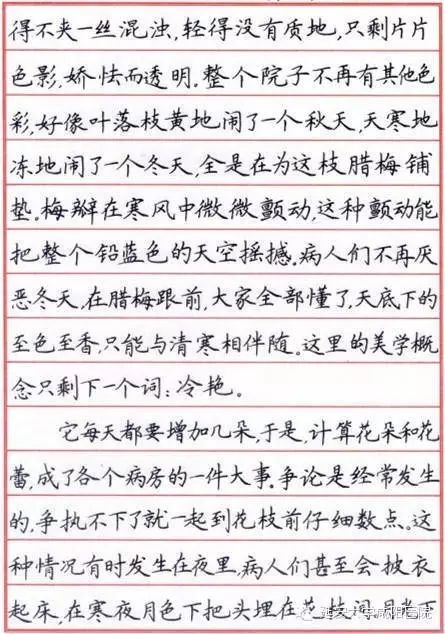 得不夹一丝混浊,轻得没有质地,只剩片片
色影,娇怯而透明。整个院子不再有其他色
彩,好像叶落枝黄地闹了一个秋天,天寒地
冻地闹了一个冬天,全是在为这枝腊梅铺
垫。梅瓣在寒风中微微颤动,这种颤动能
把整个铅蓝色的天空摇撼。病人们不再厌
恶冬天,在腊梅跟前,大家全部懂了,天底下的
至色至香,只能与清寒相伴随。这里的美学概
念只剩下一个词:冷艳。
它每天都要增加几朵,于是,计算花朵和花
蕾,成了各个病房的一件大事。争论是经常发生
的,争执不下了就一起到花枝前仔细数点。这
种情况有时发生在夜里,病人们甚至会披衣
起床,在寒夜月色下把头埋在花枝间。月光下